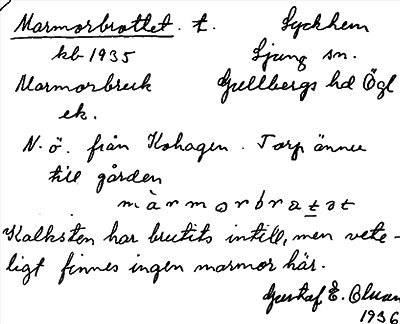 Marmorbrottet. t. Lyckhem
kb 1935 Ljung sn.
Marmorbruk Gullbergs hd Ögl
ek.
N. ö. från Kohagen. Torp ännu
till gården
Kalksten har brutits intill, men vete-
ligt finnes ingen marmor här.
Gustaf E.
1936